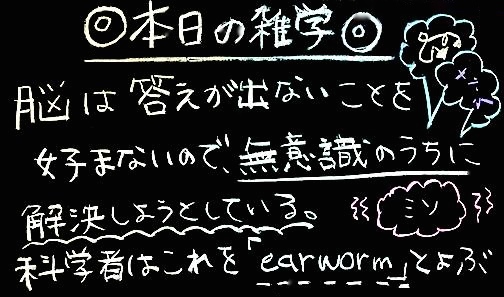 ◎本日の雑学◎
脳は答えが出ないことを
好まないので、無意識のうちに
解決しようとしている。
ミソ
科学者はこれを「earworm」とよぶ